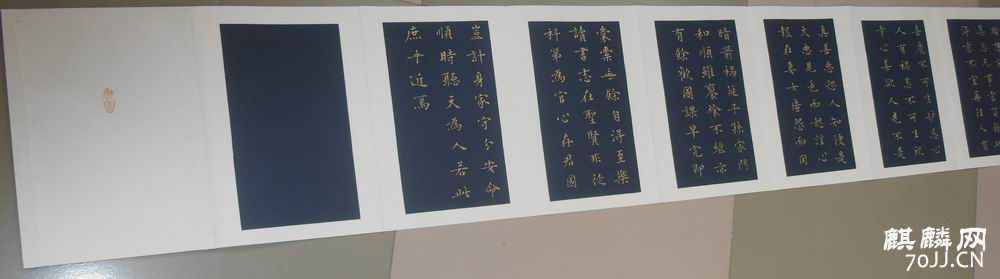 得意不宜再往人有
喜慶不可生妒忌心
人有禍患不可生欣
幸心善欲人見不是
真善惡恐人知便是
大惡見色而起淫心
報在妻女匿怨而用
暗箭禍延子孫家門
和順雖饔飧不繼亦
有餘歡國課早完即
囊橐無餘自得至樂
讀書志在聖賢非徒
科第為官心存君國
豈計身家守分安命
順時聽天為人若此
庶乎近焉
麒麟网
70JJ.CN